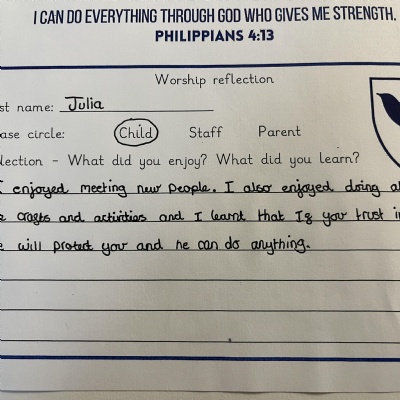 I CAN DO EVERYTHING THROUGH GOD WHO GIVES ME STRENGTH.
PHILIPPIANS 4:13
Worship reflection
st name: Julia
ase circle: Child Staff Parent
lection - What did you enjoy? What did you learn?
I enjoyed meeting new people. I also enjoyed doing a
e crafts and activities and I learnt that If you trust i
e will protect you and he can do anything.